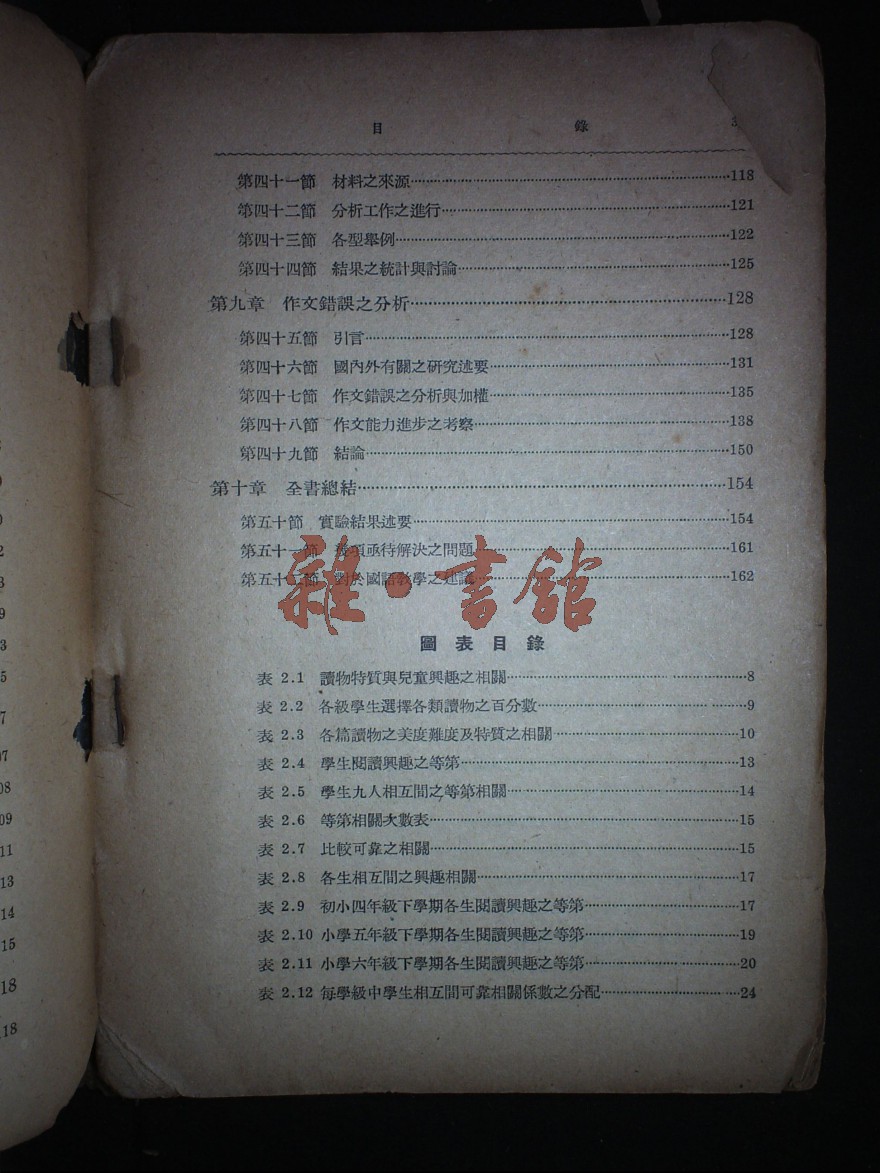 目 錄 3
第四十一節 材料之來源……118
第四十二節 分析工作之進行……121
第四十三節 各型舉例……122
第四十四節 結果之統計與討論……125
第九章 作文錯誤之分析……128
第四十五節 引言……128
第四十六節 國內外有關之研究述要……131
第四十七節 作文錯誤之分析與加權……135
第四十八節 作文能力進步之考察……138
第四十九節 結論……150
第十章 全書總結……154
第五十節 實驗結果述要……154
第五十一節 項亟待解決之問題……161
第五十二節 對於國語教學之建議……162
雜·書館
圖表目錄
表 2.1 讀物特質與兒童興趣之相關……8
表 2.2 各級學生選擇各類讀物之百分數……9
表 2.3 各篇讀物之美度難度及特質之相關……10
表 2.4 學生閱讀興趣之等第……13
表 2.5 學生九人相互間之等第相關……14
表 2.6 等第相關次數表……15
表 2.7 比較可靠之相關……15
表 2.8 各生相互間之興趣相關……17
表 2.9 初小四年級下學期各生閱讀興趣之等第……17
表 2.10 小學五年級下學期各生閱讀興趣之等第……19
表 2.11 小學六年級下學期各生閱讀興趣之等第……20
表 2.12 每學級中學生相互間可靠相關係數之分配……24